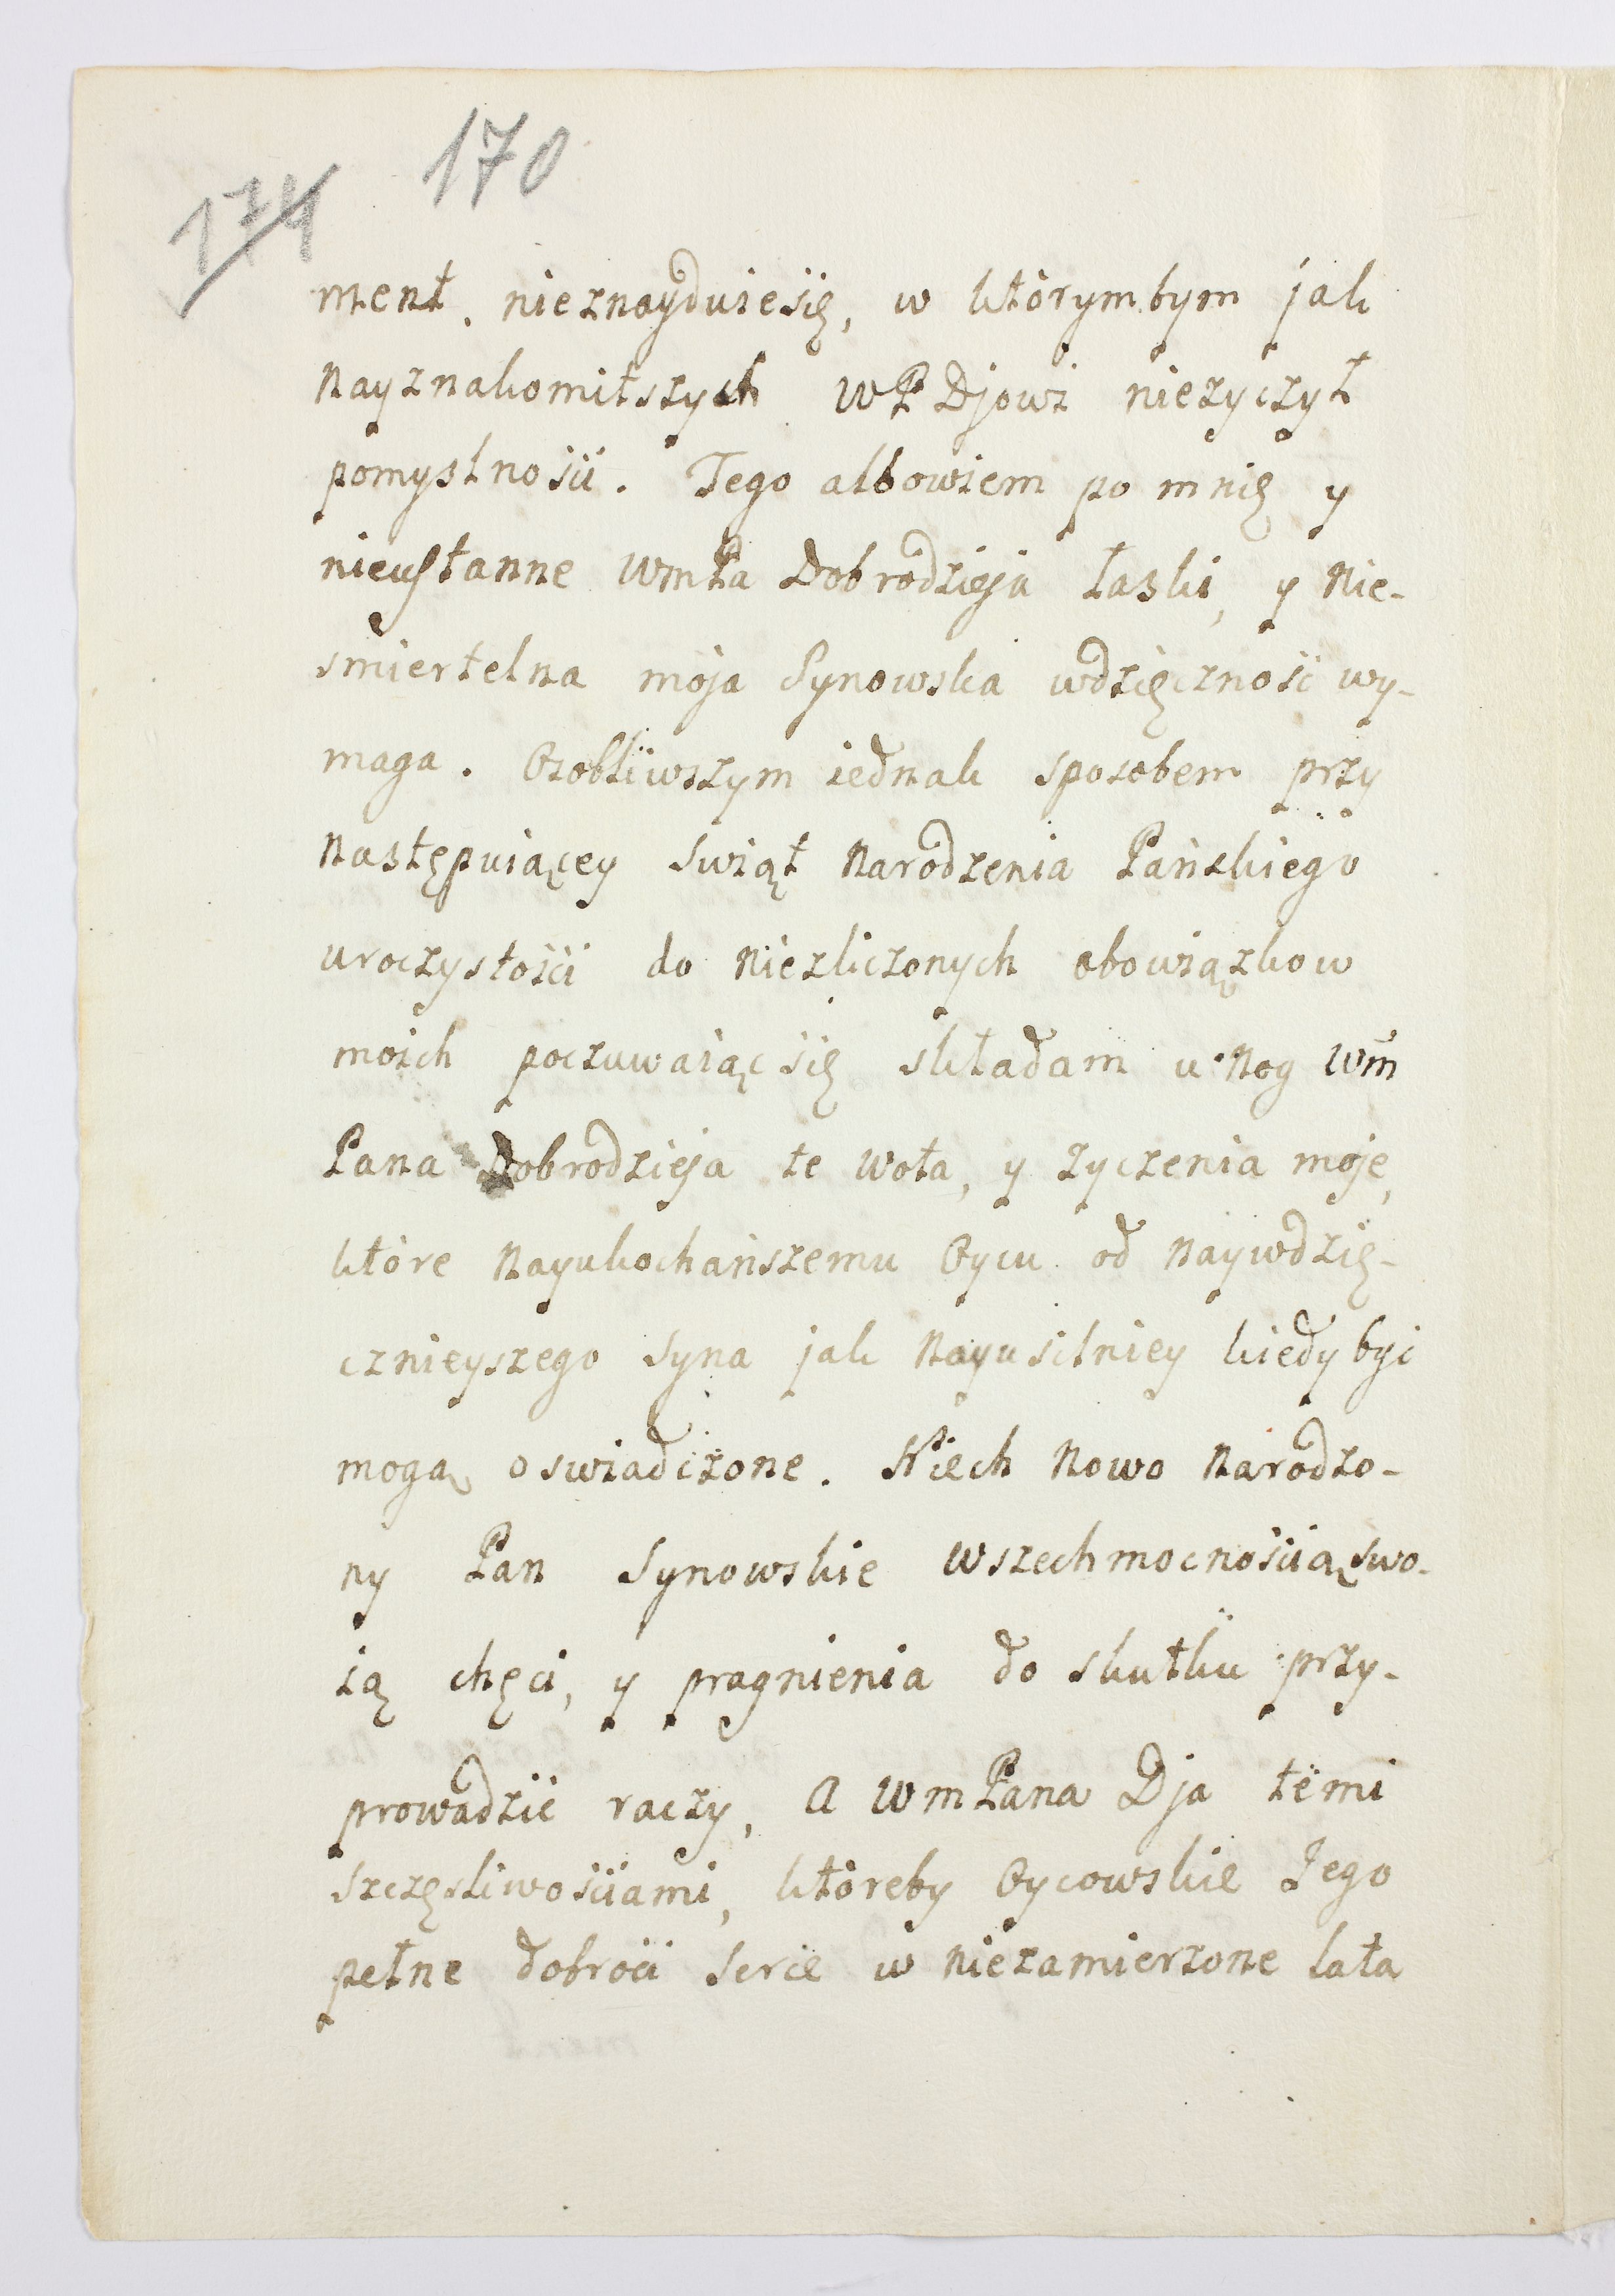 170
174
ment. nieznayduiesię, w którymbym jak
nayznakomitszych WP Djowi nieżyczył
pomyslnosci. Tego albowiem po mnię y
nieustanne WmPa Dobrodzieja łaski, y nie-
smiertelna moja Synowska wdzięcznosć wy-
maga. Osobliwszym iednak sposobem przy
następuiącey Swiąt Narodzenia Pańskiego
uroczystości do niezliczonych obowiązkow
moich poczuwaiąc się składam u nog Wm
Pana Dobrodzieja te wota, y życzenia moje,
które nayukochańszemu Oycu od naywdzię-
cznieyszego Syna jak nayusilniey kiedy byc
mogą oswiadczone. Niech nowo narodzo-
ny Pan Synowskie wszechmocnoscią swo-
ią chęci, y pragnienia do skutku przy-
prowadzić raczy, a WmPana Dja temi
szczęsliwosciami, któreby Oycowskie Jego
pełne dobroci serce w niezamierzone lata